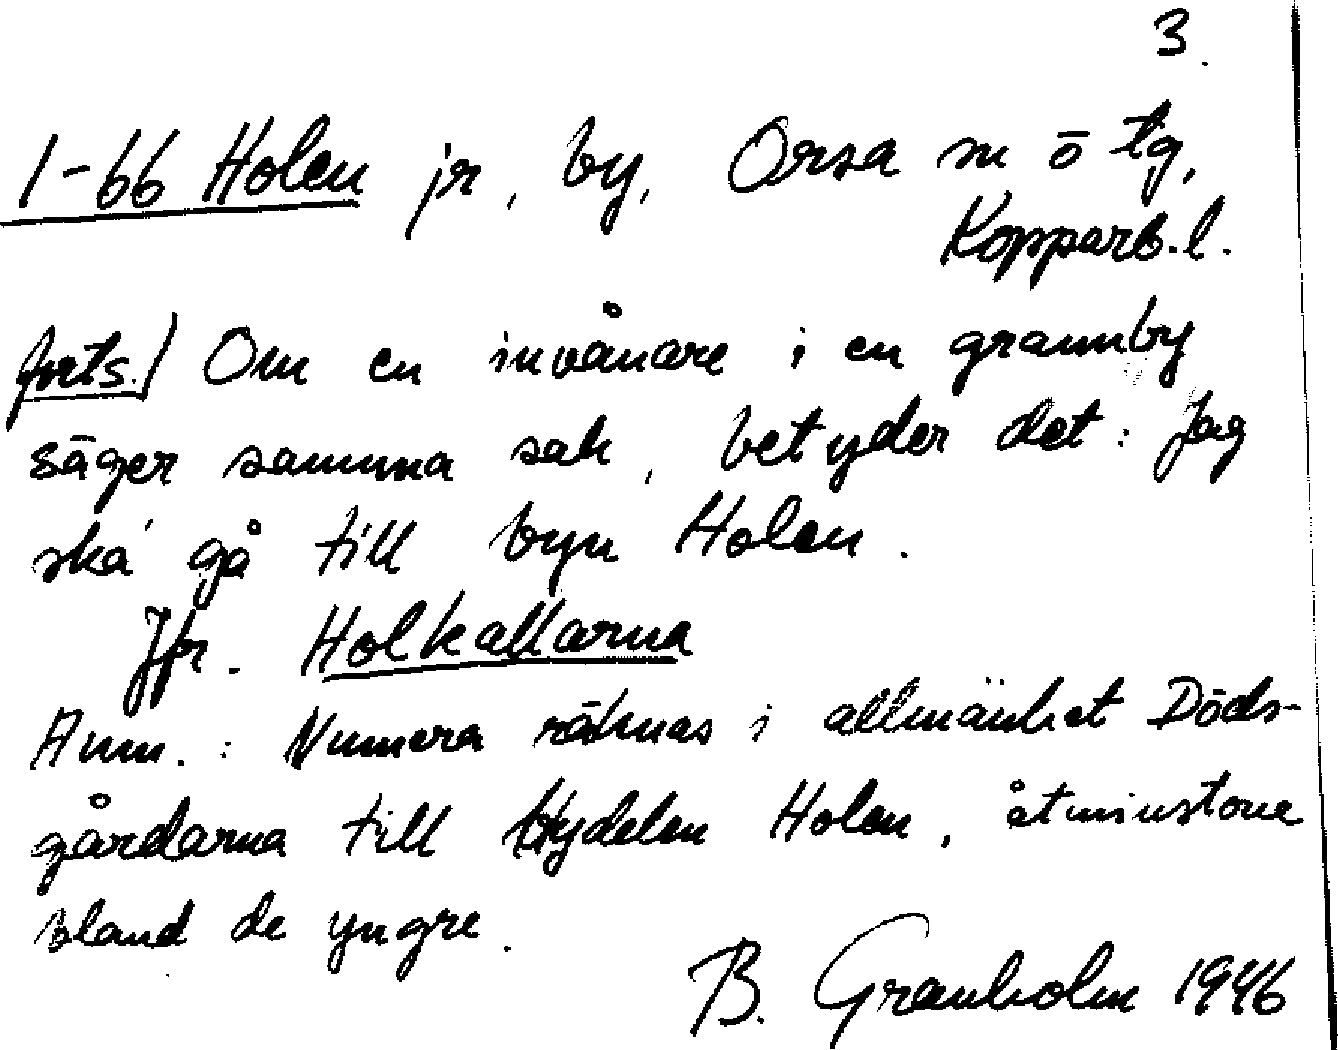 3.
1-66 Holen jr, by, Orsa sn ö tg,
Kopparb.l.
forts.) Om en invånare i en grannby
säger samma sak, betyder det: Jag
ska' gå till byn Holen.
Jfr. Holkallarna
Anm.: Numera räknas i allmänhet Döds-
gårdarna till bydelen Holen, åtminstone
bland de yngre.
B. Granholm 1946